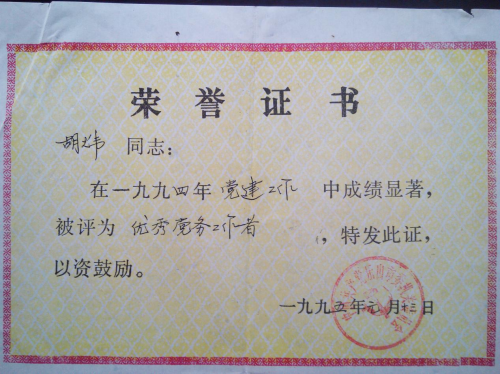 荣誉证书
胡炜 同志:
在一九九四年 党建工作 中成绩显著,
被评为 优秀党务工作者 ,特发此证,
以资鼓励。
一九九五年元月十三日